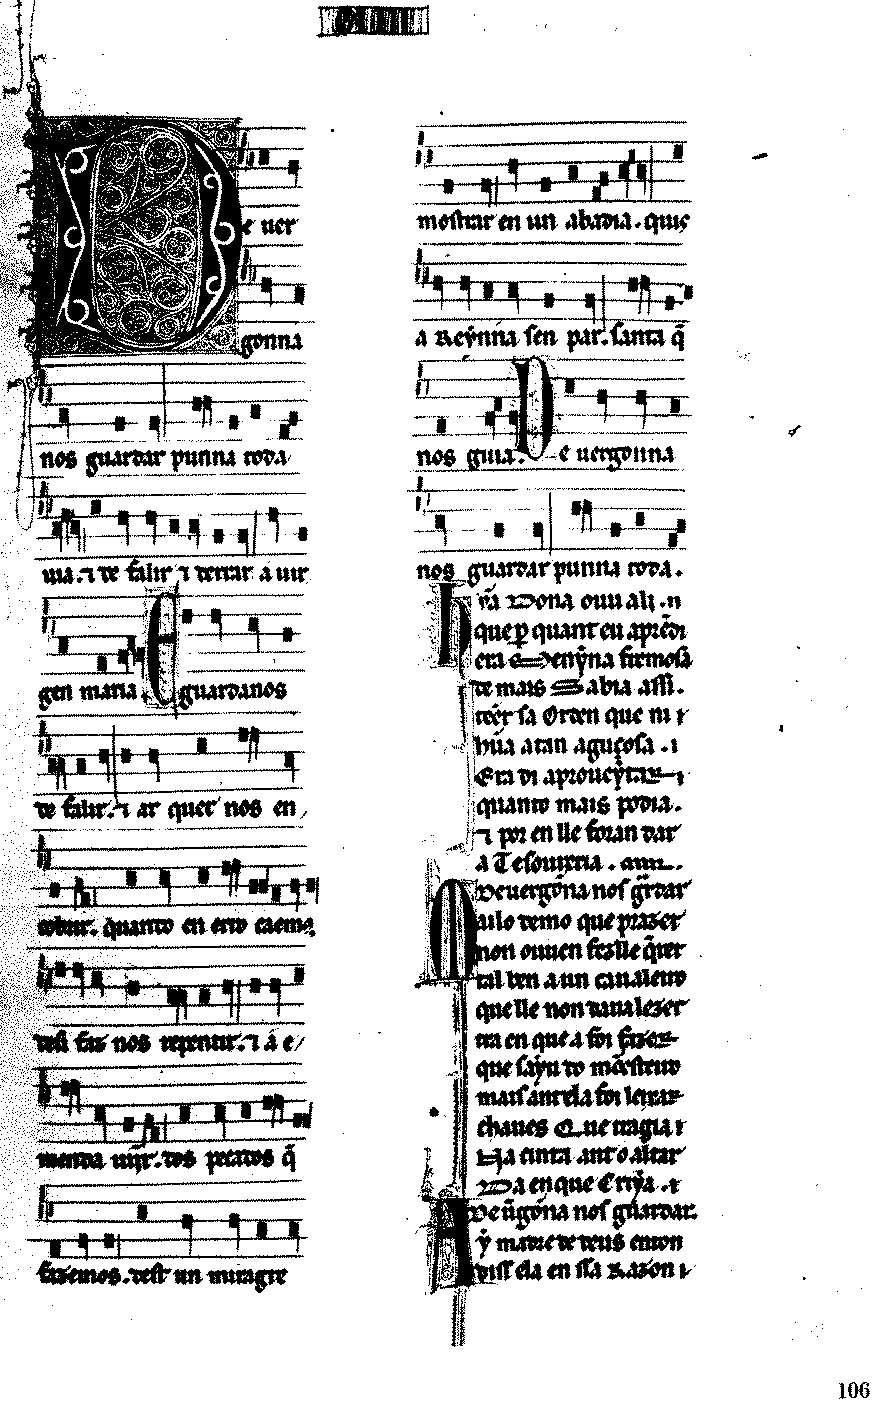 e uer
gonna
nos guardar punna toda
uia. ⁊ de falir ⁊ derrar a uir
gen maria E guardanos
de falir. ⁊ ar quer nos en
cobrir. quanto en erro caemos
desi faz nos repentir. ⁊ a e
menda uĩjr. dos pecados q̃
fazemos. dest un miragre
mostrar en un abadia. quis
a Reynna sen par. santa q̃
nos guia. De uergonna
nos guardar punna toda.
que p quant eu aprẽdi
era Menỹna fremosa
de mais Sabia assi.
teẽr sa Orden que ni
hũa atan aguçosa. ⁊
Era di aproueỹtar
quanto mais podia.
⁊ por en lle foran dar
a Tesoureria.
De uergõna nos g̃rdar
M ailo demo que prazer
non ouuen fezlle q̃rer
tal ben a un caualeiro
que lle non daua lezer
tra en que a foi fazer
que sayu do mõesteiro
mais ant ela foi leixar
chaues Que tragia
Na cinta ant o altar
Da en que Criỹa.
De ũgõna nos guardar.
A ỹ madre de deus enton
diss ela en ssa Razon
106